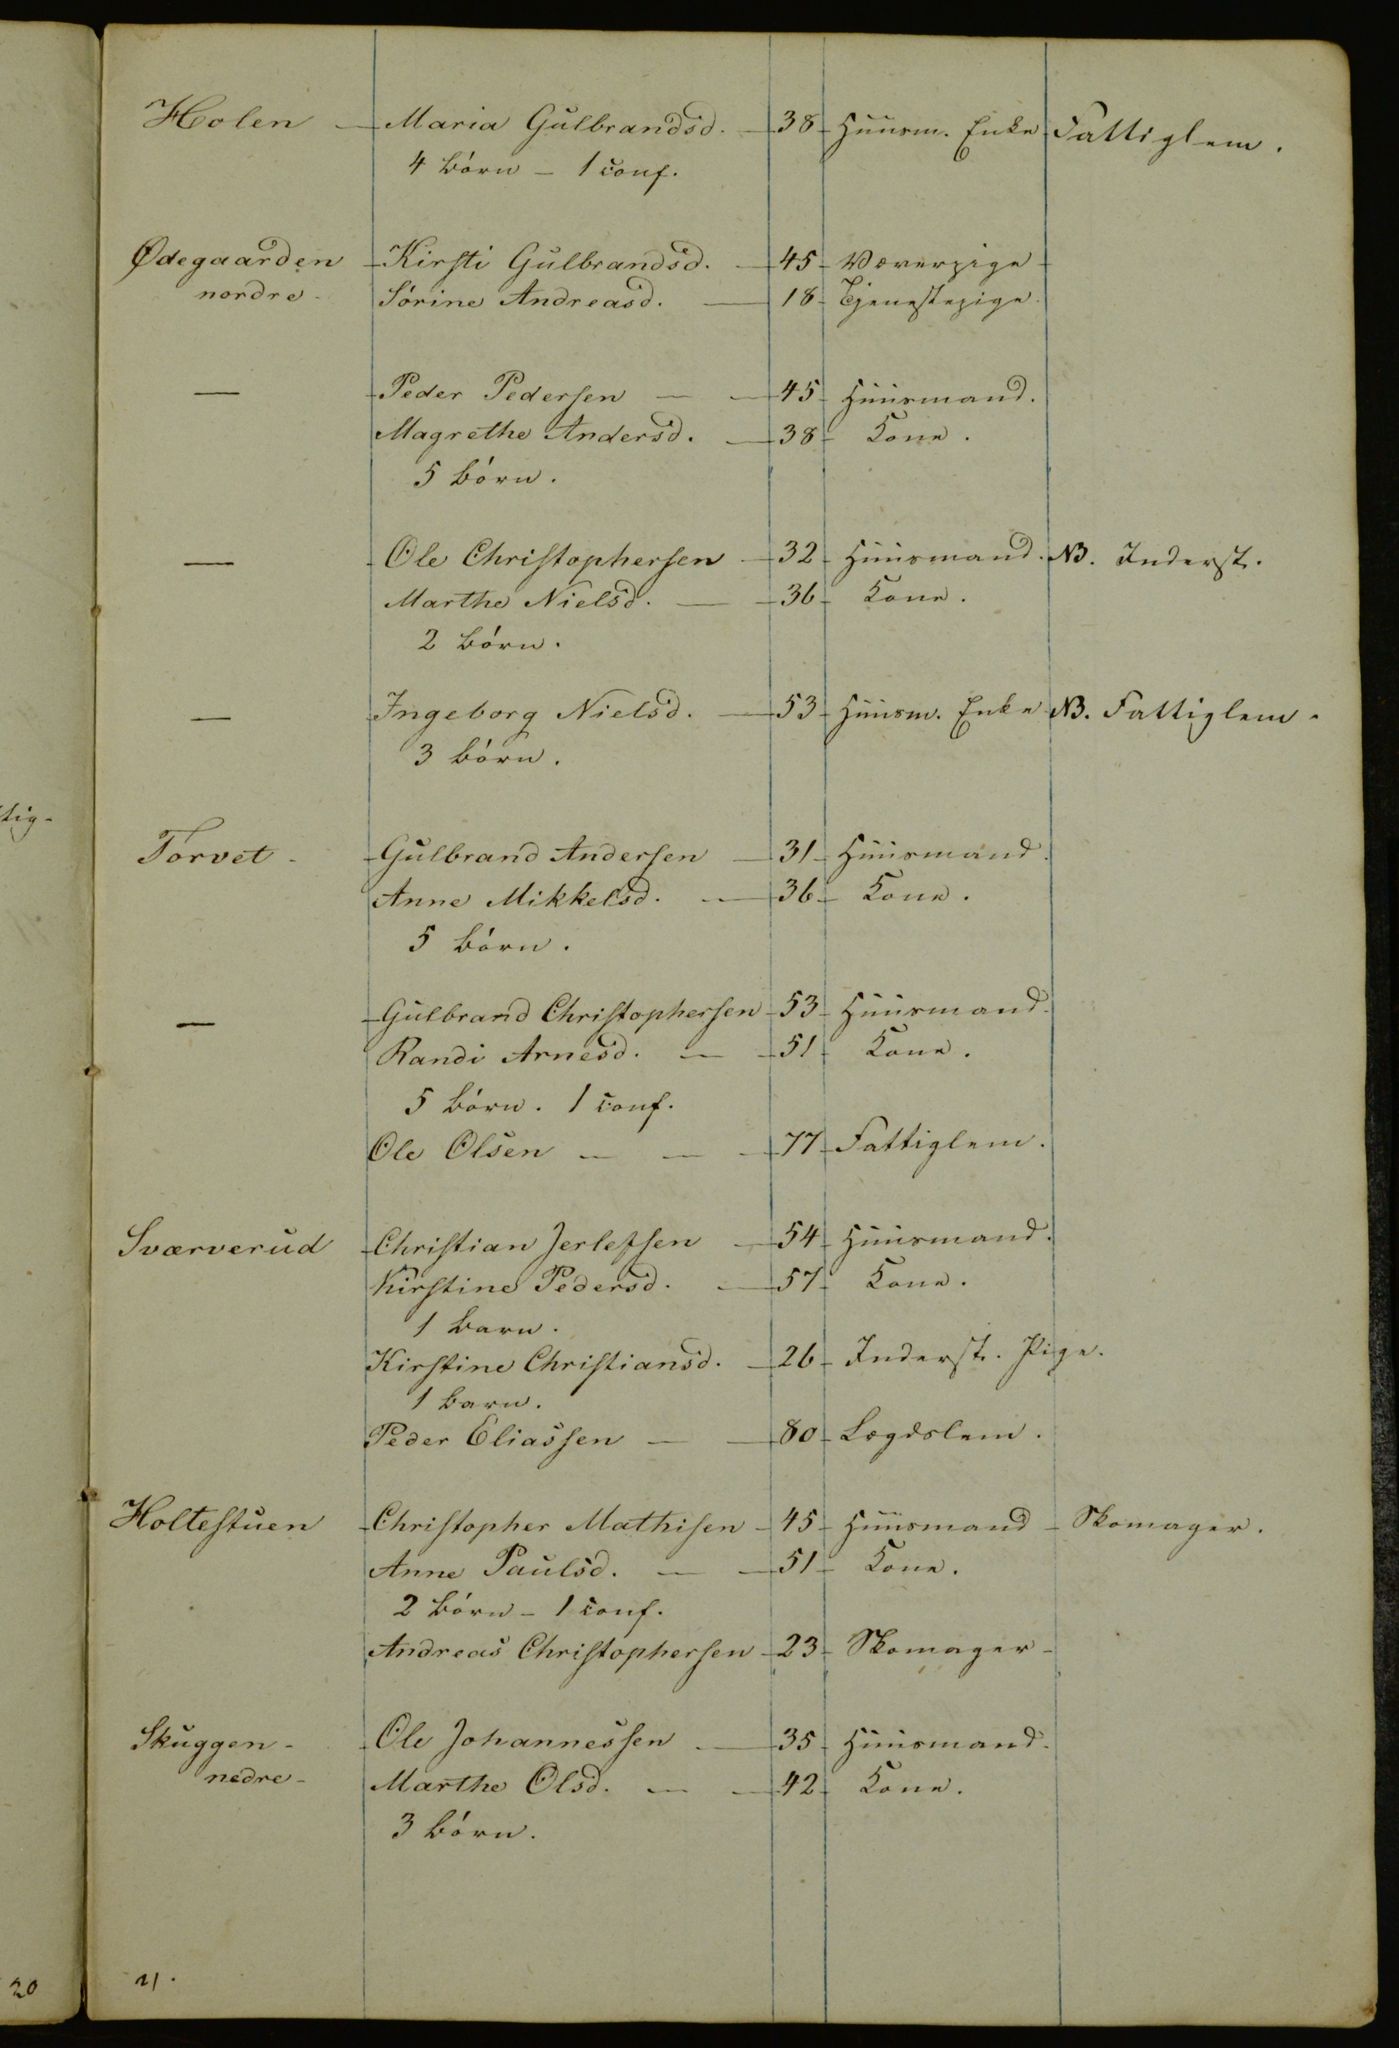 Holen — Maria Gulbrandsd. — 38 — Huusm. Enke Fattiglem.
4 børn — 1 conf.
Ødegaarden — Kirsti Gulbrandsd. — 45 — Væverpige —
nordre — Sørine Andreasd. — 18 — Tjenestepige.
— Peder Pedersen — — 45 — Huusmand.
Magrethe Andersd. — 38 — Kone.
5 børn.
— Ole Christophersen — 32 — Huusmand. NB. Inderst.
Marthe Nielsd. — — 36 — Kone.
2 børn.
— Ingeborg Nielsd. — 53 — Huusm. Enke NB. Fattiglem.
3 børn.
tig-
Torvet — Gulbrand Andersen — 31 — Huusmand.
Anne Mikkelsd. — 36 — Kone.
5 børn.
— Gulbrand Christophersen — 53 — Huusmand.
Randi Arnesd. — — 51 — Kone.
5 børn. 1 conf.
Ole Olsen — — — 77 — Fattiglem.
Sværverud — Christian Jerlefsen — 54 — Huusmand.
Kirstine Pedersd. — 57 — Kone.
1 barn.
Kirstine Christiansd. — 26 — Inderst. Pige.
1 barn.
Peder Eliassen — — 80 — Lægdslem.
Holtestuen — Christopher Mathisen — 45 — Huusmand — Skomager.
Anne Paulsd. — — 51 — Kone.
2 børn — 1 conf.
Andreas Christophersen — 23 — Skomager —
Skuggen — Ole Johannessen — 35 — Huusmand.
nedre — Marthe Olsd. — — 42 — Kone.
3 børn.
20 21.